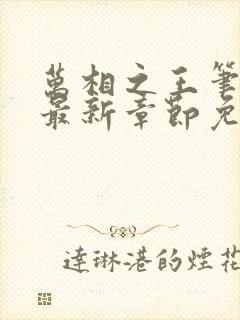 萬相之王筆
最新章節免
達琳港的煙花